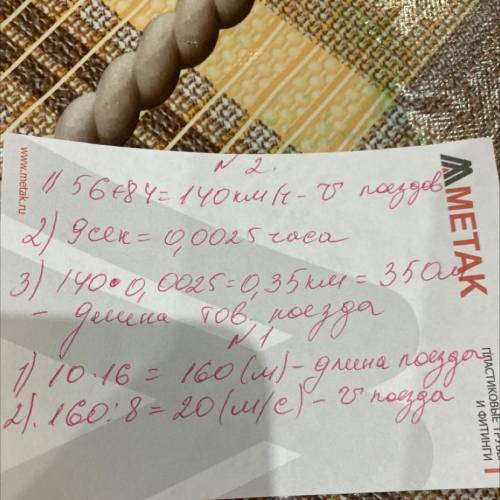 www.metak.ru
МЕТАК
ПЛАСТИКОВЫЕ ТРУБЫ
И ФИТИНГИ
N 2.
1) 56+84=140км/ч - v поездов
2) 9сек = 0,0025 часа
3) 140•0,0025=0,35км = 350м
- длина тов. поезда
N 1
1) 10·16 = 160(м) - длина поезда
2). 160:8=20(м/с) - v поезда